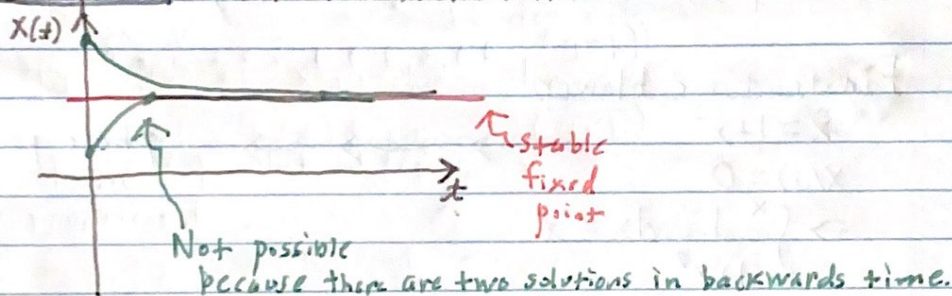 x(t)
stable
fixed
point
t
Not possible
because there are two solutions in backwards time